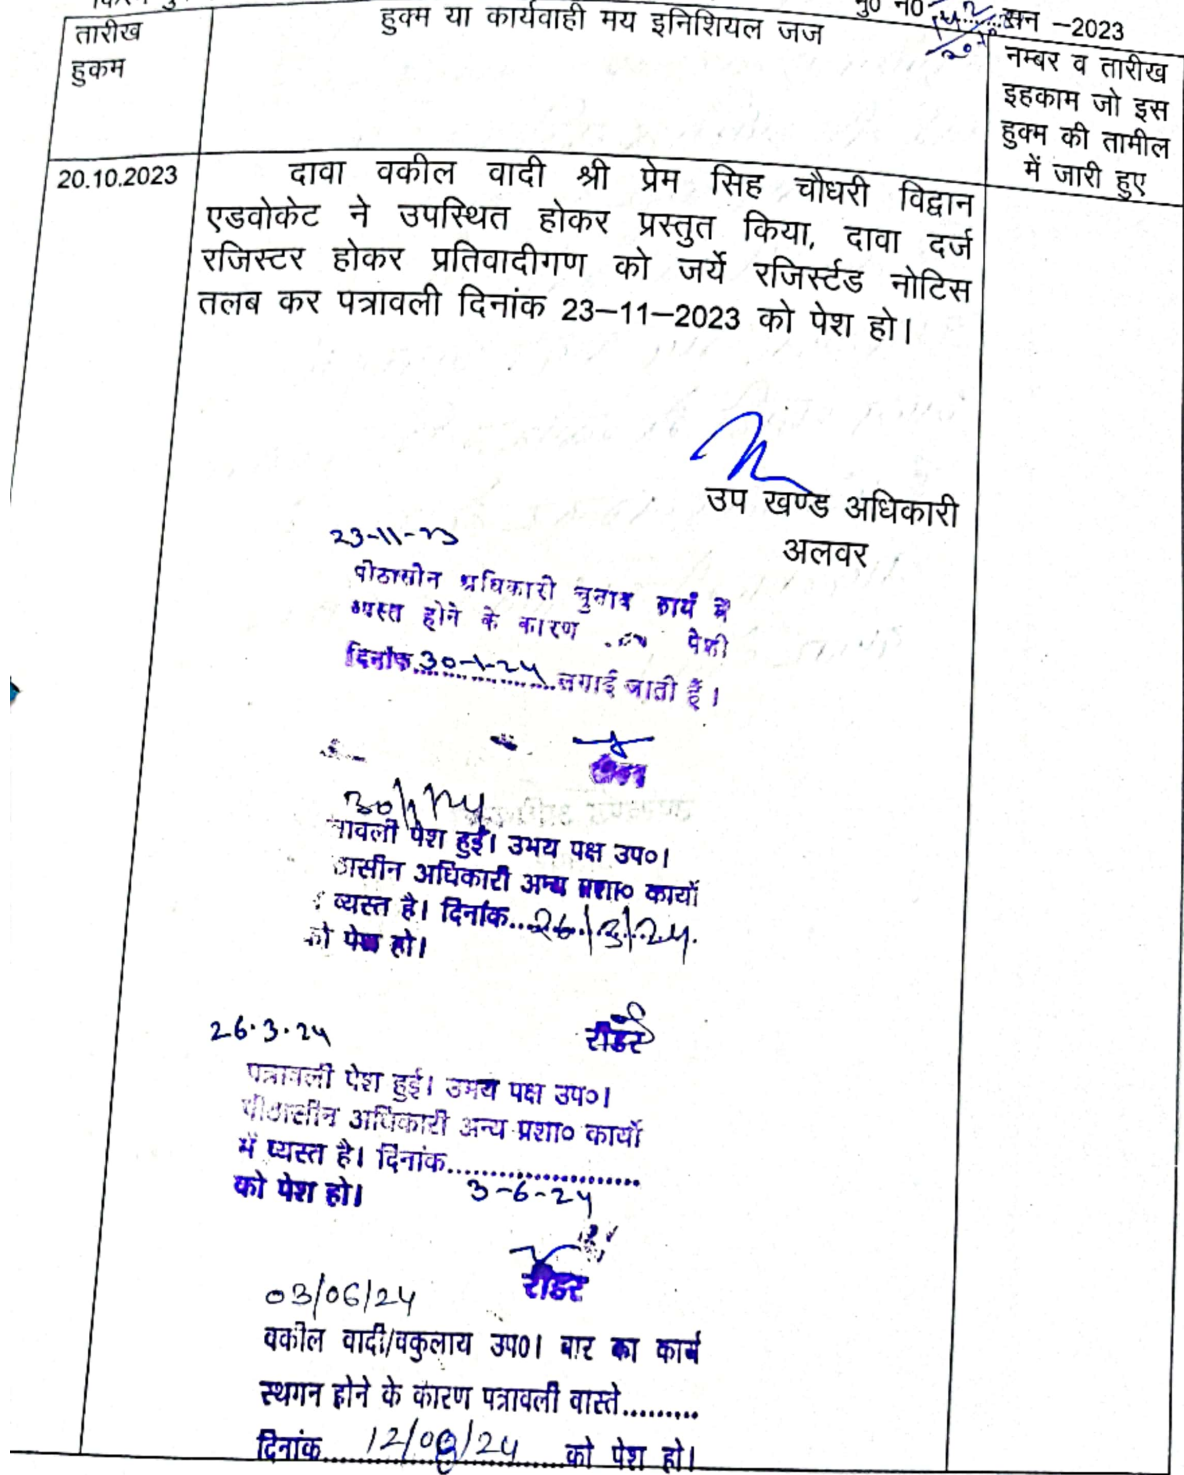 सन –2023
तारीख
हुकम
हुक्म या कार्यवाही मय इनिशियल जज
नम्बर व तारीख
इहकाम जो इस
हुक्म की तामील
में जारी हुए
20.10.2023
दावा वकील वादी श्री प्रेम सिह चौधरी विद्वान
एडवोकेट ने उपस्थित होकर प्रस्तुत किया, दावा दर्ज
रजिस्टर होकर प्रतिवादीगण को जर्ये रजिर्स्टड नोटिस
तलब कर पत्रावली दिनांक 23–11–2023 को पेश हो।
उप खण्ड अधिकारी
अलवर
23-11-23
पीठासीन अधिकारी चुनाव कार्य में
व्यस्त होने के कारण पेशी
दिनांक 30-1-24 लगाई जाती है।
30/1/24
त्रावली पेश हुई। उभय पक्ष उप०।
ठासीन अधिकारी अन्य प्रशा० कार्यो
व्यस्त है। दिनांक...26/3/24.
को पेश हो।
रीडर
26.3.24
पत्रावली पेश हुई। उभय पक्ष उप०।
पीठासीन अधिकारी अन्य प्रशा० कार्यो
में व्यस्त है। दिनांक......................
को पेश हो। 3-6-24
रीडर
03/06/24
वकील वादी/वकुलाय उप0। बार का कार्य
स्थगन होने के कारण पत्रावली वास्ते.........
दिनांक....12/08/24....को पेश हो।